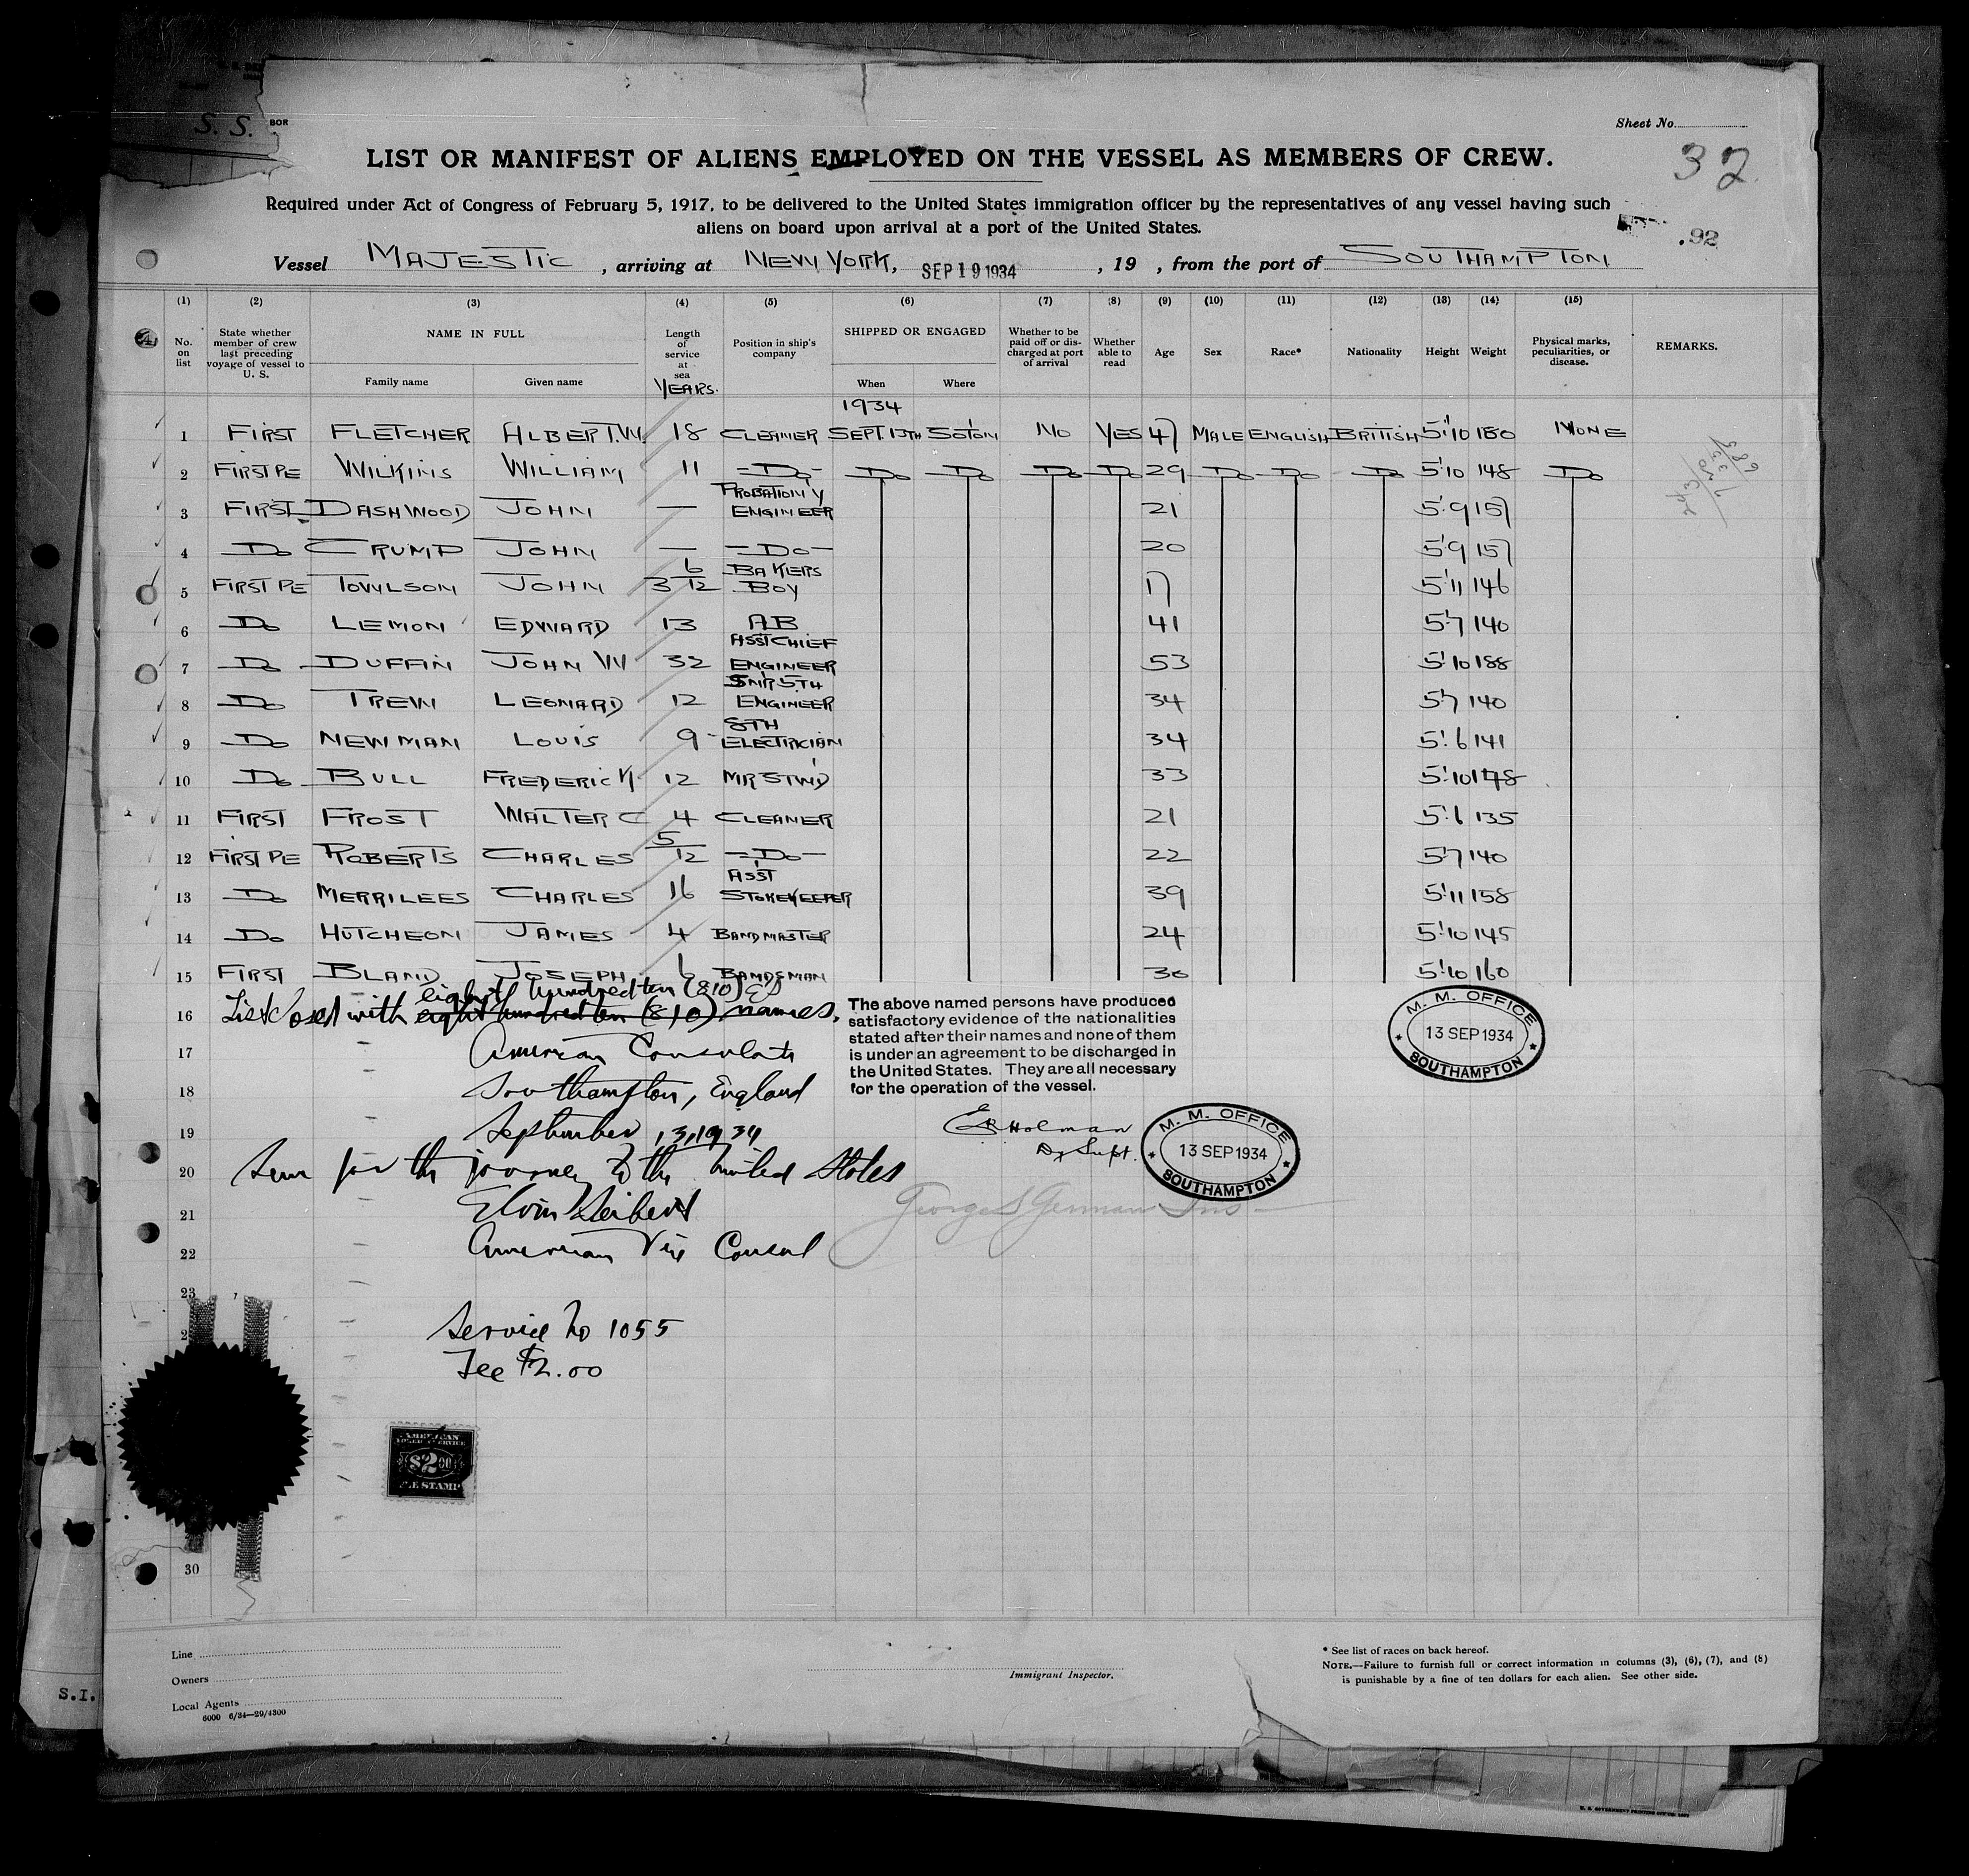 S. S. BOR
Sheet No.
32
LIST OR MANIFEST OF ALIENS EMPLOYED ON THE VESSEL AS MEMBERS OF CREW.
Required under Act of Congress of February 5, 1917, to be delivered to the United States immigration officer by the representatives of any vessel having such
aliens on board upon arrival at a port of the United States.
.92
Vessel MAJESTIC , arriving at NEW YORK, SEP 19 1934 , 19 , from the port of SOUTHAMPTON
(1) (2) (3) (4) (5) (6) (7) (8) (9) (10) (11) (12) (13) (14) (15)
No. on list State whether member of crew last preceding voyage of vessel to U. S. NAME IN FULL Family name Given name Length of service at sea YEARS. Position in ship's company SHIPPED OR ENGAGED When Where Whether to be paid off or discharged at port of arrival Whether able to read Age Sex Race* Nationality Height Weight Physical marks, peculiarities, or disease. REMARKS.
1934
1 FIRST FLETCHER ALBERT.W. 18 CLEANER SEPT 13TH SOTON NO YES 47 MALE ENGLISH BRITISH 5'10 180 NONE
2 FIRST PE WILKINS WILLIAM 11 -Do- Do Do Do Do 29 Do Do Do 5'10 148 Do
3 FIRST DASHWOOD JOHN — PROBATION'Y ENGINEER 21 5'9 157
4 Do CRUMP JOHN — -Do- 20 5'9 157
5 FIRST PE TOWLSON JOHN 3 6/12 BAKERS BOY 17 5'11 146
6 Do LEMON EDWARD 13 AB 41 5'7 140
7 Do DUFFIN JOHN W 32 ASST CHIEF ENGINEER 53 5'10 188
8 Do TREW LEONARD 12 SNR 5TH ENGINEER 34 5'7 140
9 Do NEWMAN LOUIS 9 8TH ELECTRICIAN 34 5'6 141
10 Do BULL FREDERICK 12 MR STW'D 33 5'10 178
11 FIRST FROST WALTER C 4 CLEANER 21 5'6 135
12 FIRST PE ROBERTS CHARLES 5/12 -Do- 22 5'7 140
13 Do MERRILEES CHARLES 16 ASST STOREKEEPER 39 5'11 158
14 Do HUTCHEON JAMES 4 BANDMASTER 24 5'10 145
15 FIRST BLAND JOSEPH 6 BANDSMAN 30 5'10 160
eight hundred ten (810) ES
16 List closed with eight hundred ten (810) names.
17 American Consulate
18 Southampton, England
19 September 13, 1934
20 Seen for the journey to the United States
21 Elvin Seibert
22 American Vice Consul
23
The above named persons have produced
satisfactory evidence of the nationalities
stated after their names and none of them
is under an agreement to be discharged in
the United States. They are all necessary
for the operation of the vessel.
Holman
Dy Supt.
M. M. OFFICE
13 SEP 1934
SOUTHAMPTON
M. M. OFFICE
13 SEP 1934
SOUTHAMPTON
George S German Ins
Service No 1055
Fee $2.00
AMERICAN
FOREIGN SERVICE
$2.00
FEE STAMP
30
Line
Owners
Local Agents
6000 6/34—29/4300
Immigrant Inspector.
* See list of races on back hereof.
NOTE.—Failure to furnish full or correct information in columns (3), (6), (7), and (8)
is punishable by a fine of ten dollars for each alien. See other side.
S.I.